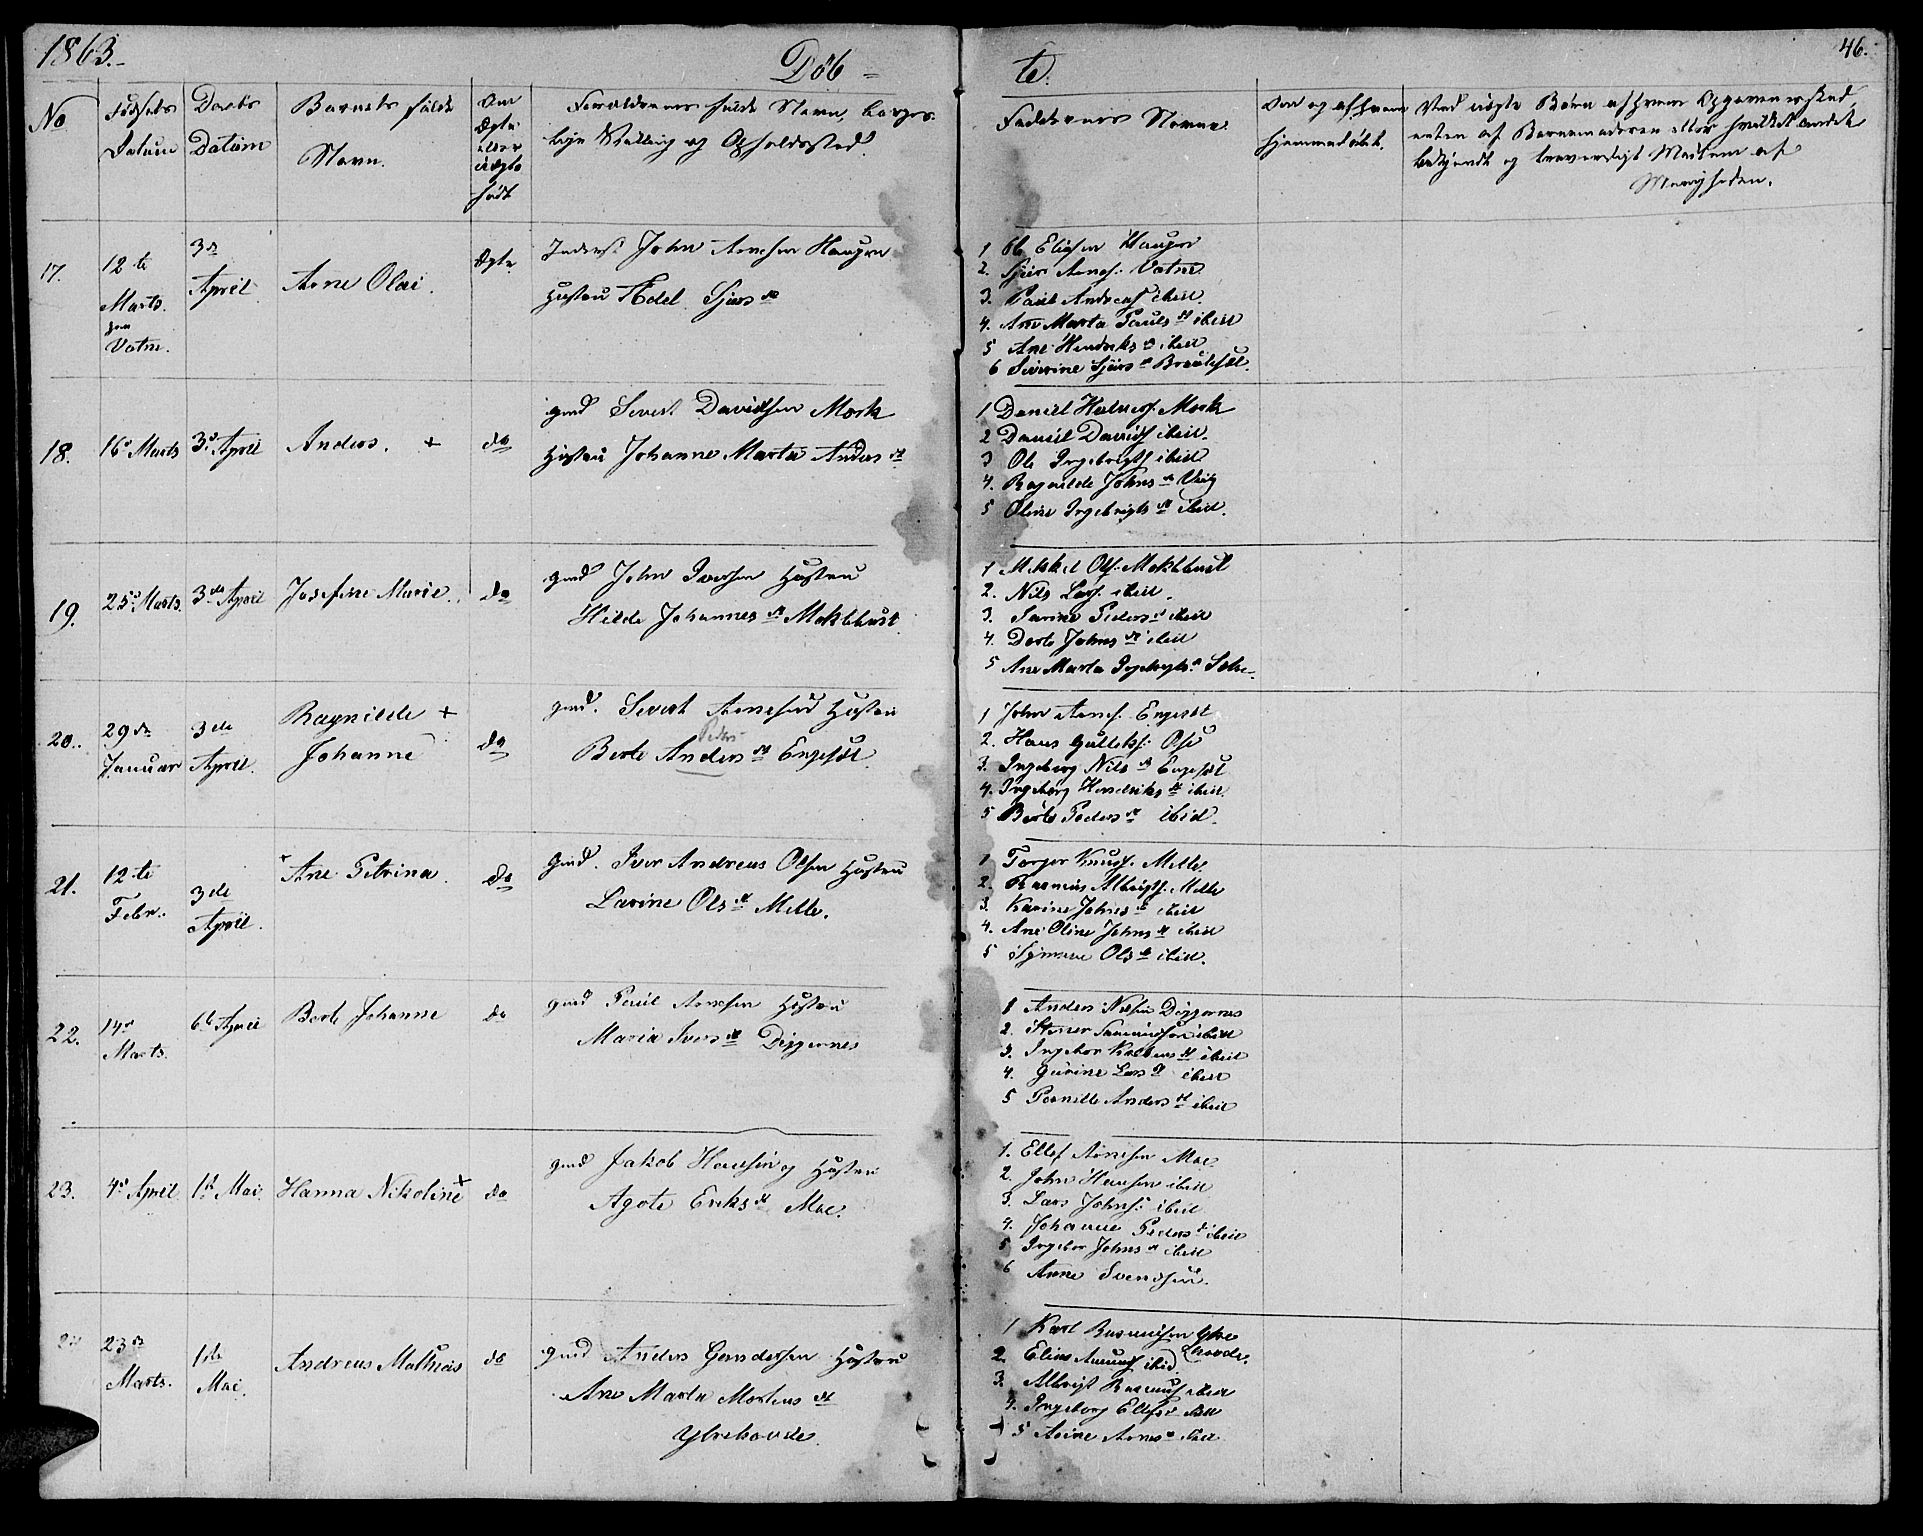 1863.
Døb-
te.
46.
No
Fødsels
Datum
Daabs
Datum
Barnets fulde
Navn.
Om
Ægte
eller
uægte
født
Forældrenes fulde Navn, borger-
lige Stilling og Opholdssted.
Faddernes Navne.
Om og af hvem
hjemmedøbt.
Ved uægte Børn af hvem Opgaven er skeed,
enten af Barnemoderen eller hvilket andet
bekjendt og troværdigt Medlem af
Menigheden.
17.
12te
Marts.
Vatne.
3de
April
Arne Olai.
Ægte
Inderst John Arnesen Haugen
Hustru Adel Sjurs d.
1 Ole Eliasen Haugen
2. Sjur Arnes. Vatne
3. Paul Andreas ibid.
4. Ane Marta Pauls d. ibid
5 Ane Hendriks d. ibid
6 Severine Sjurs d. Brauteset.
18.
16d Marts
3d April
Anders. +
do
gmd Sivert Davidsen Mork
Hustru Johanne Marta Anders d.
1 Daniel Halvors. Mork
2 Daniel Davids ibid.
3 Ole Ingebrigts ibid
4. Ragnilde Johns d. Vig
5 Oline Ingebrigts d. ibid.
19.
25d Marts.
3de April
Josefine Marie.
do
gmd John Iversen Hustru
Hilde Johannes d. Moklebust
1 Mikkel Ols. Moklebust
2. Nils Lars. ibid.
3. Sarine Peders d. ibid
4. Dorte Johns d. ibid
5 Ane Marta Ingebrigts d.
20.
29de
Januar
3de
April.
Ragnilde +
Johanne
do
gmd. Sivert Arnesen Hustru
Peders
Berte Anders d. Engeset.
1 John Arnes. Engeset
2. Hans Gulleks. Ose
3. Ingeborg Nils d. Engeset
4. Ingeborg Hendriks d. ibid.
5 Berte Peders d. ibid.
21.
12te
Febr.
3de
April.
+ Ane Petrina.
do
Gmd. Iver Andreas Olsen Hustru
Larine Ols d. Melle.
1 Torger Knuds. Melle.
2. Rasmus Albrigts. Melle
3. Karine Johns d. ibid
4. Ane Oline Johns d. ibid
5 Synneve Ols d. ibid.
22.
14d
Marts.
6te April
Berte Johanne
do
gmd Paul Arnesen Hustru
Maria Ivers d. Digernes
1 Anders Nilsen Digernes
2. Stener Samundsen ibid
3. Ingebor Knudsens d. ibid
4. Gurine Lars d. ibid
5 Pernille Anders d. ibid
23.
4d April
1st Mai.
Hanna Nikoline +
do
gmd Jakob Hansen og Hustru
Agote Eriks d. Moe.
1. Ellef Arnesen Moe.
2. John Hansen ibid
3. Lars Johns. ibid
4. Johanne Peders d. ibid
5 Ingebor Johns d. ibid
6 Anne Svendsen.
23de
Marts.
1ste
Mai.
Andreas Mathias
do
gmd Anders Gundersen Hustru
Ane Marta Mortens d.
Ytrehovde.
1 Karl Rasmusen Ytre
hovde.
2. Elias Amunds ibid.
3. Albrigt Rasmus ibid
4. Ingeborg Ellefsd. ibid
5 Anne Arnes d. ibid